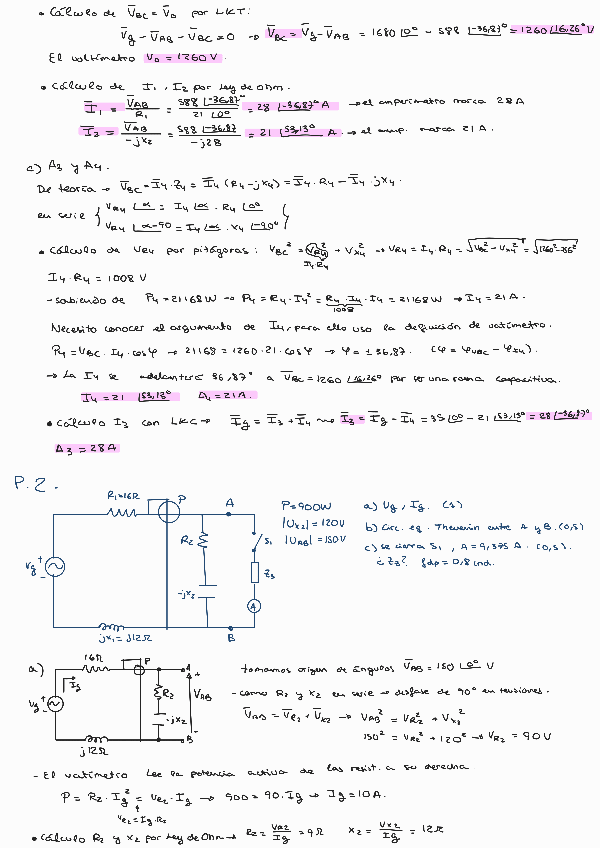 • Cálculo de V̄BC = V̄0 por LKT:
V̄g - V̄AB - V̄BC = 0 → V̄BC = V̄g - V̄AB = 1680 |0° - 588 |-36,87° = 1260 |16,26° V
El voltímetro V0 = 1260 V.
• Cálculo de I1, I2 por Ley de Ohm.
Ī1 = V̄AB / R1 = 588 |-36,87° / 21 |0° = 28 |-36,87° A → el amperímetro marca 28 A
Ī2 = V̄AB / -jX2 = 588 |-36,87° / -j28 = 21 |53,13° A → el amp. marca 21 A.
c) A3 y A4.
De teoría → V̄BC = Ī4 · Z4 = Ī4 (R4 - jX4) = Ī4 · R4 - Ī4 · jX4.
en serie { VR4 |α = I4 |α · R4 |0°
VX4 |α-90 = I4 |α · X4 |-90° }
• Cálculo de VR4 por pitágoras: VBC² = VR4² + VX4² → VR4 = I4 · R4 = √VBC² - VX4² = √1260² - 756²
I4·R4
I4 · R4 = 1008 V
- Sabiendo de P4 = 21168 W → P4 = R4 · I4² = R4 · I4 · I4 = 21168 W → I4 = 21 A.
1008
Necesito conocer el argumento de I4, para ello uso la definición de vatímetro.
P4 = VBC · I4 · cosφ → 21168 = 1260 · 21 · cosφ → φ = ± 36,87. (φ = φVBC - φI4).
→ La I4 se adelanta 36,87° a V̄BC = 1260 |16,26° por ser una rama capacitiva.
Ī4 = 21 |53,13° A4 = 21 A.
• Cálculo I3 con LKC → Īg = Ī3 + Ī4 → Ī3 = Īg - Ī4 = 35 |0° - 21 |53,13° = 28 |-36,87°
A3 = 28 A
P.2.
R1=16Ω P A
Vg + -
R2 -jX2 S1 Z3 A
jX1 = j12Ω B
P = 900W
|UX2| = 120V
|UAB| = 150V
a) Ug, Ig. (1)
b) Circ. eq. Thevenin entre A y B. (0,5)
c) se cierra S1, A = 9,375 A. (0,5).
¿Z3? fdp = 0,8 ind.
a) 16Ω P A
Vg + - Īg R2 -jX2 V̄AB + -
j12Ω B
tomamos origen de ángulos V̄AB = 150 |0° V
- como R2 y X2 en serie → desfase de 90° en tensiones.
V̄AB = V̄R2 + V̄X2 → VAB² = VR2² + VX2²
150² = VR2² + 120² → VR2 = 90 V
- El vatímetro lee la potencia activa de las resist. a su derecha
P = R2 · Ig² = VR2 · Ig → 900 = 90 · Ig → Ig = 10A.
VR2 = Ig·R2
• Cálculo R2 y X2 por Ley de Ohm → R2 = VR2 / Ig = 9Ω X2 = VX2 / Ig = 12Ω